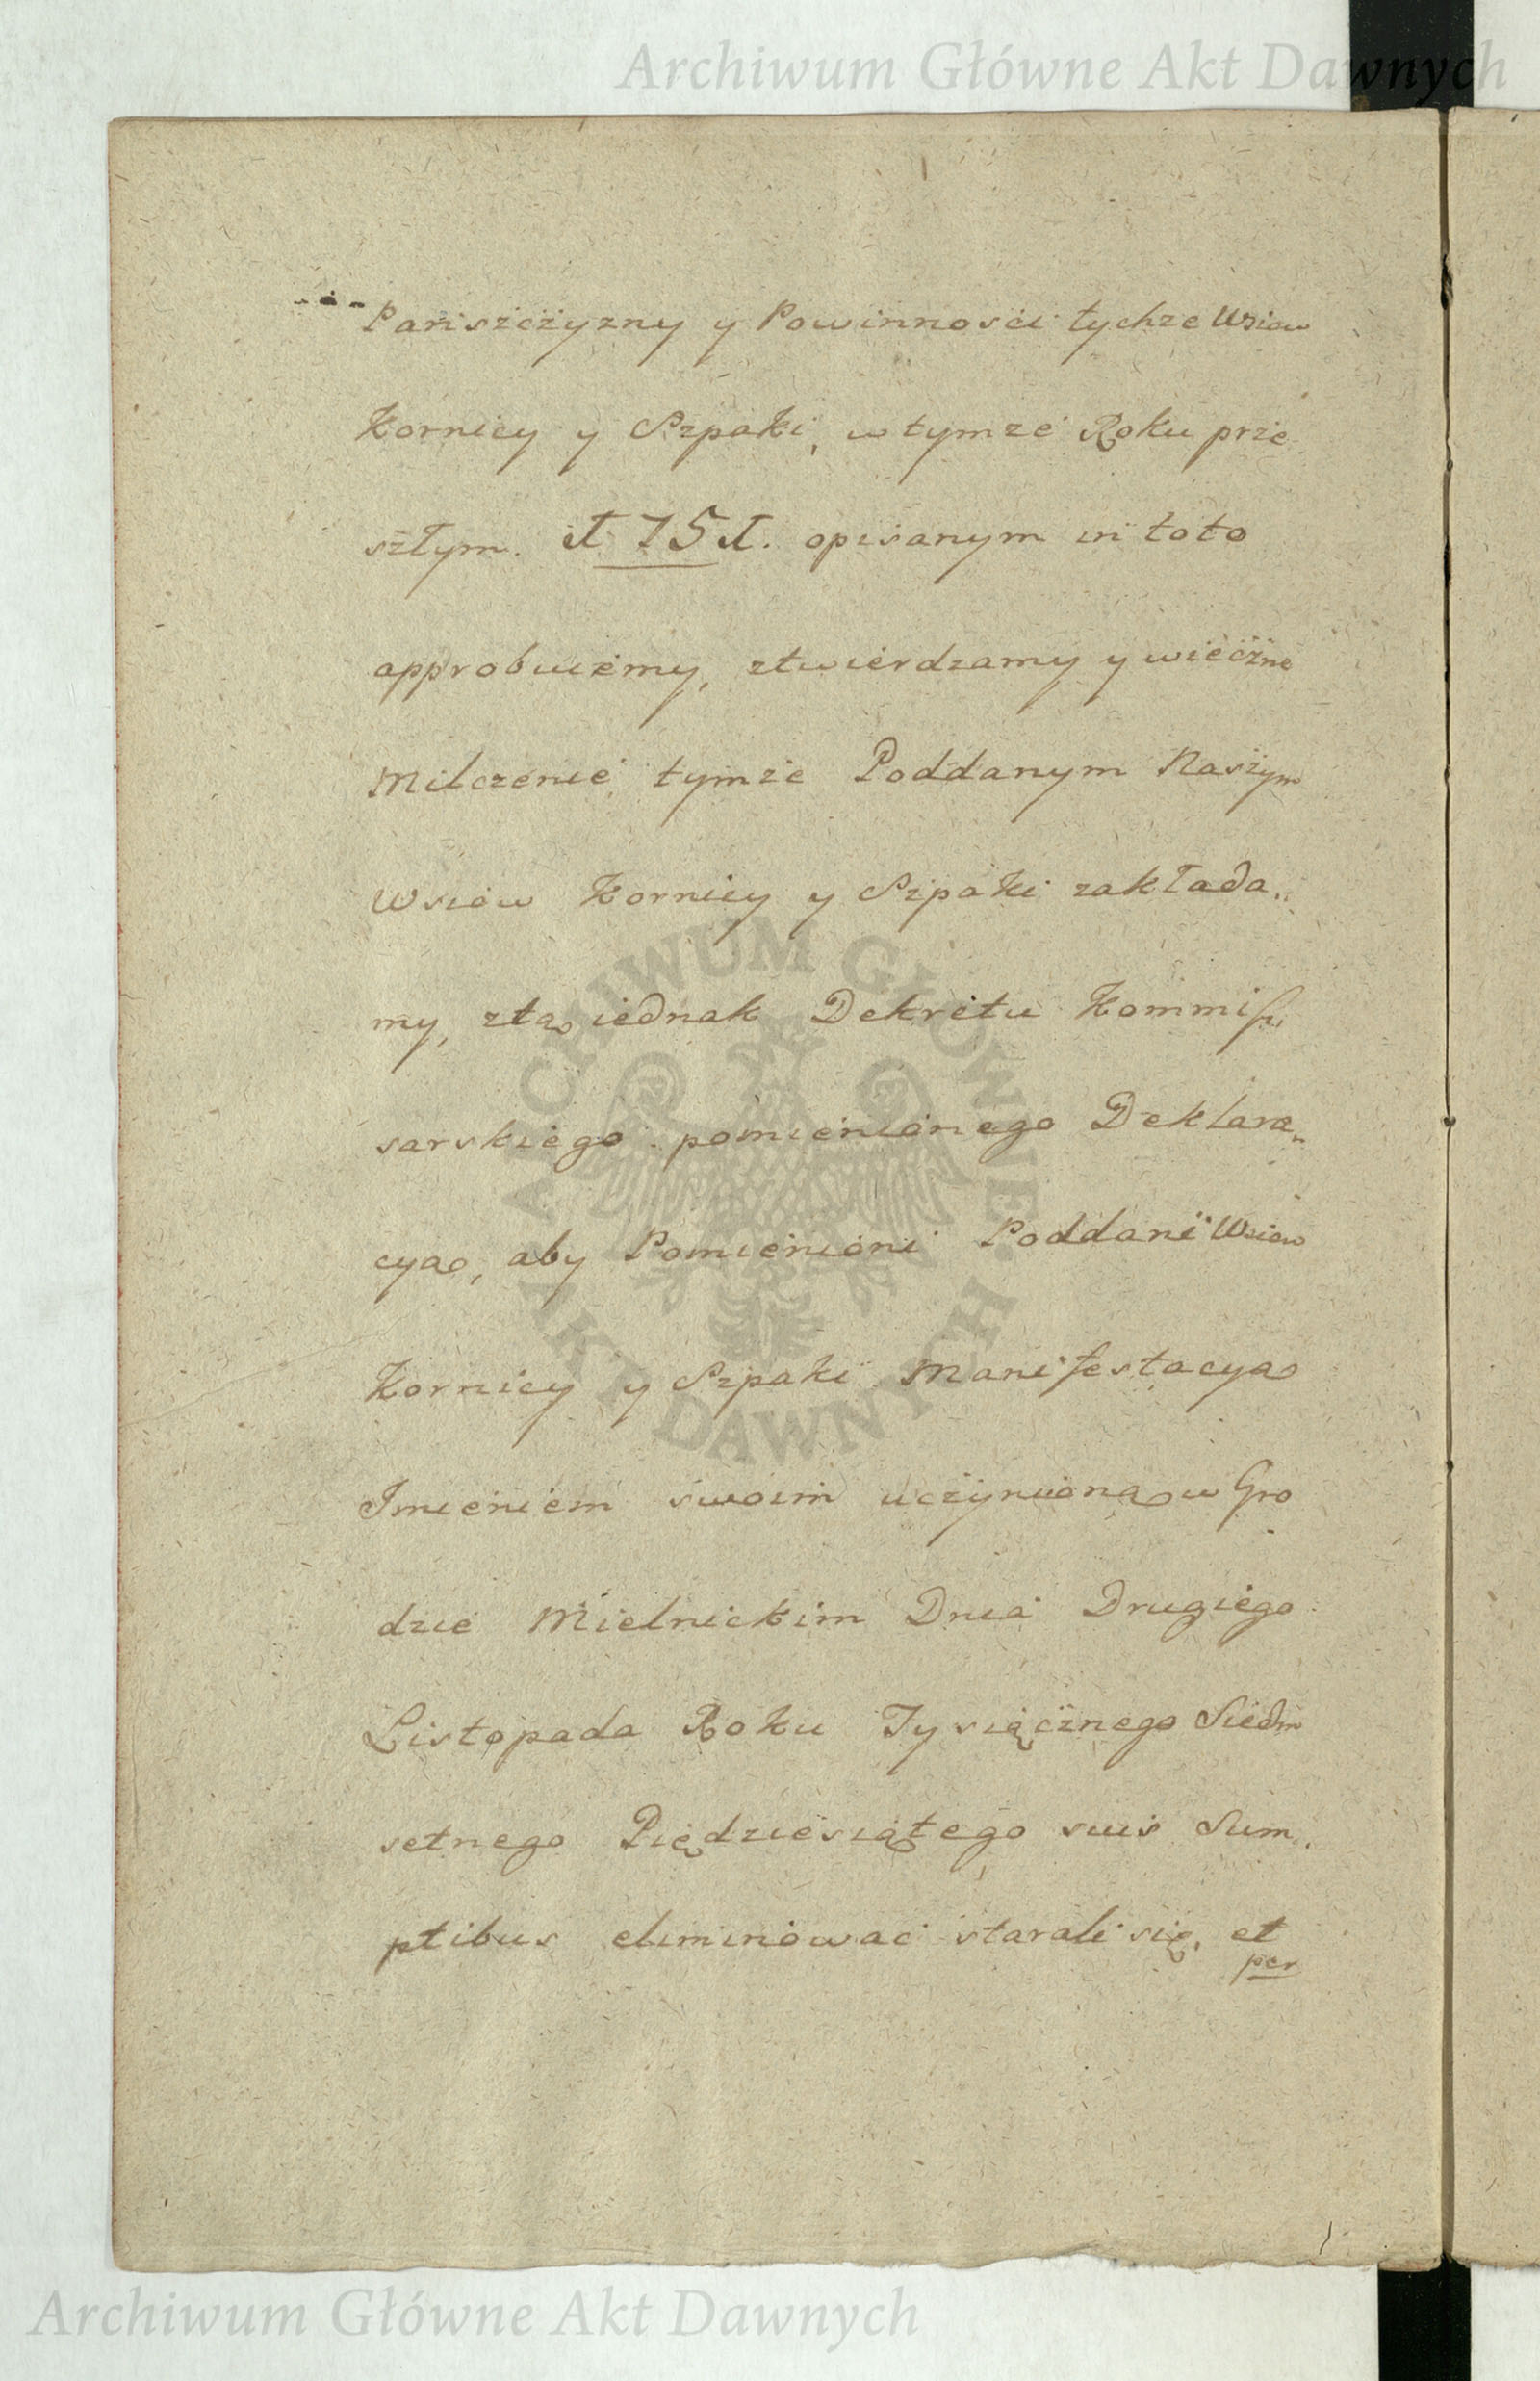 Archiwum Główne Akt Dawnych
Pańszczyzny y Powinności tychże Wsiow
Kornicy y Szpaki, w tymże Roku prze
szłym. 1751. opisanym in toto
approbuiemy, ztwierdzamy y wieczne
Milczenie tymże Poddanym Naszym
Wsiow Kornicy y Szpaki zakłada„
my, ztą iednak Dekretu Kommis„
sarskiego pomienionego Deklara„
cyą, aby Pomienioni Poddani Wsiow
Kornicy y Szpaki Manifestacyą
Imieniem swoim uczynioną w Gro
dzie Mielnickim Dnia Drugiego
Listopada Roku Tysiącznego Siedm
setnego Piędziesiątego suis Sum„
ptibus eliminować starali się, et
per
ARCHIWUM GŁÓWNE AKT DAWNYCH
Archiwum Główne Akt Dawnych